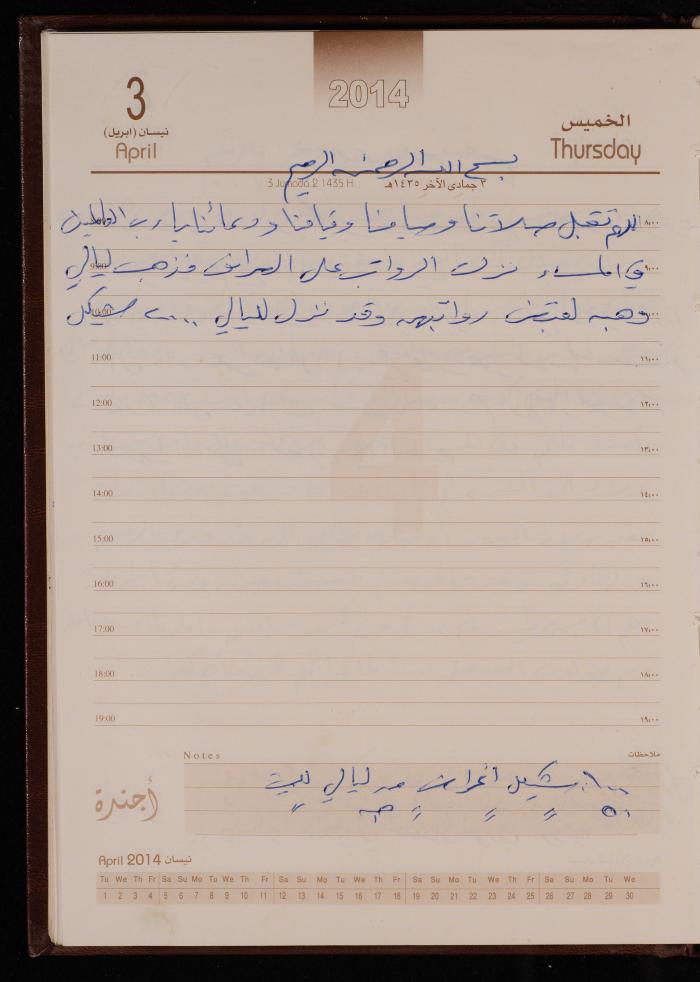 2014
3
نيسان (ابريل)
April
الخميس
Thursday
بسم الله الرحمن الرحيم
3 Jumada 2 1435 H. ٣ جمادى الآخر ١٤٣٥هـ
اللهم تقبل صلاتنا وصيامنا وقيامنا ودعائنا يا رب العالمين
في المساء نزلت الرواتب على الصراف فذهبت ليالي
وهبه لقبض رواتبهم وقد نزل لليالي ٢٠٠٠ شيكل
8:00 ٨:٠٠
9:00 ٩:٠٠
10:00 ١٠:٠٠
11:00 ١١:٠٠
12:00 ١٢:٠٠
13:00 ١٣:٠٠
14:00 ١٤:٠٠
15:00 ١٥:٠٠
16:00 ١٦:٠٠
17:00 ١٧:٠٠
18:00 ١٨:٠٠
19:00 ١٩:٠٠
Notes ملاحظات
شيكل أغراض من ليالي للبيت
أجندة
April 2014 نيسان
Tu We Th Fr Sa Su Mo Tu We Th Fr Sa Su Mo Tu We Th Fr Sa Su Mo Tu We Th Fr Sa Su Mo Tu We
1 2 3 4 5 6 7 8 9 10 11 12 13 14 15 16 17 18 19 20 21 22 23 24 25 26 27 28 29 30